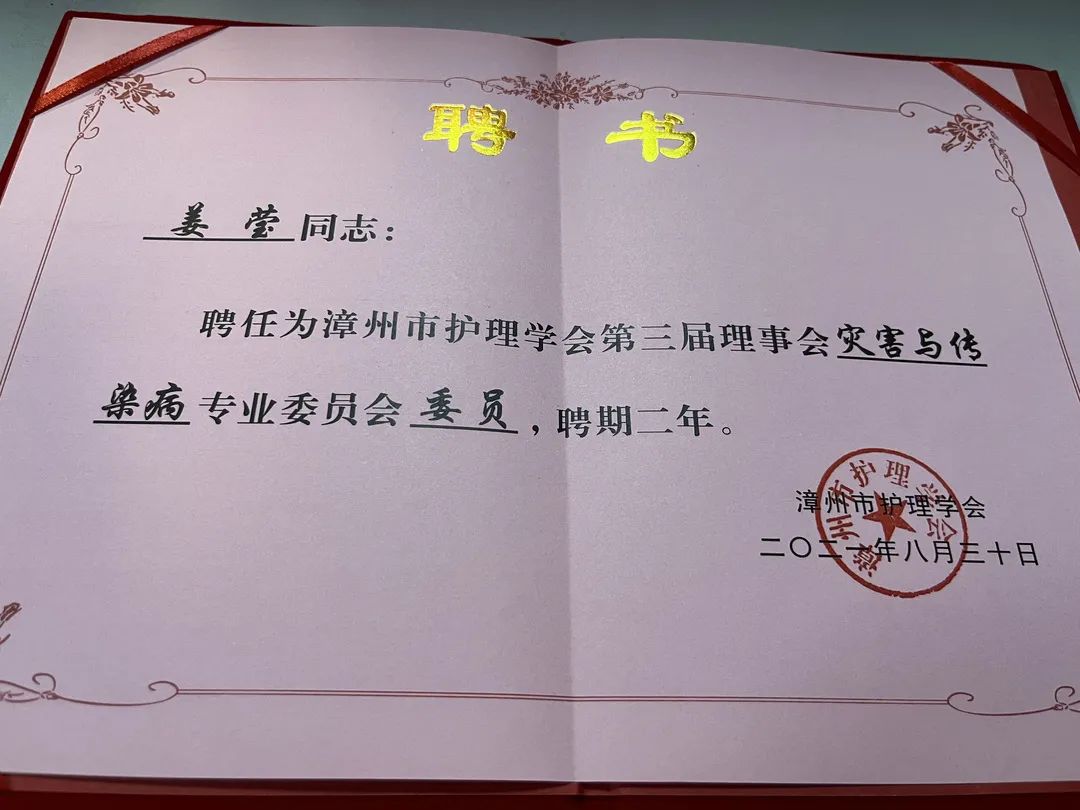 聘 书
姜 莹 同志：
聘任为漳州市护理学会第三届理事会灾害与传
染病专业委员会 委员，聘期二年。
漳州市护理学会
二〇二一年八月三十日
漳州市护理学会